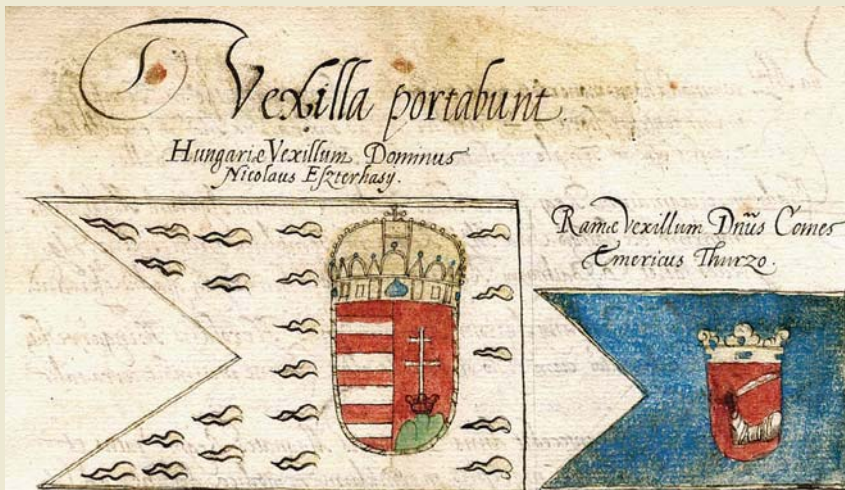 Vexilla portabunt
Hungariæ Vexillum Dominus
Nicolaus Eszterhasy.
Ramæ Vexillum Dnũs Comes
Emericus Thurzo.